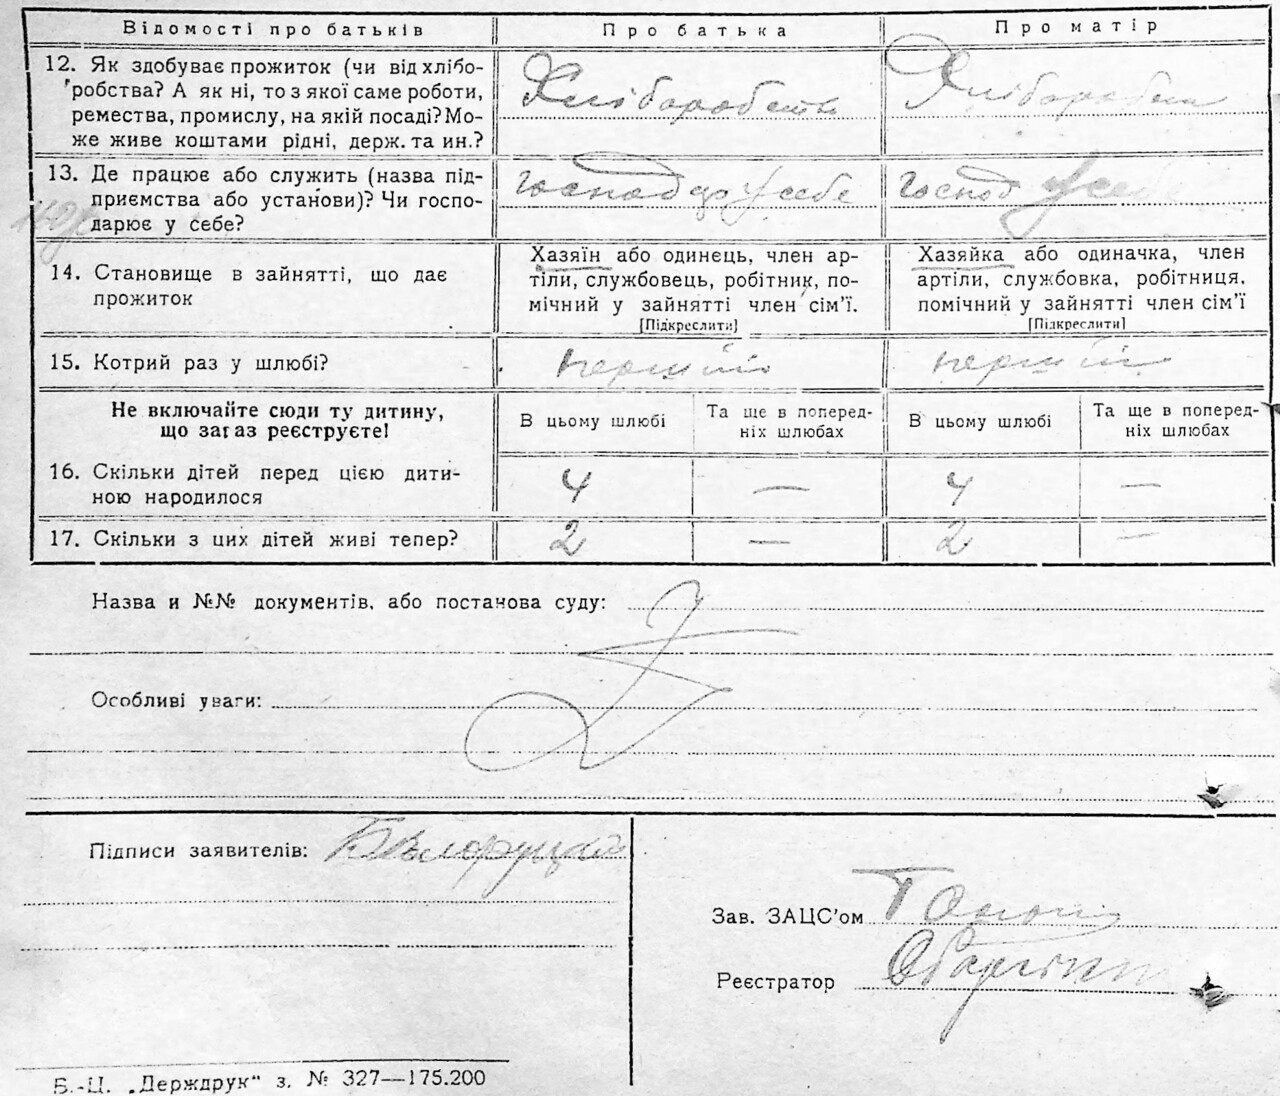 Відомості про батьків Про батька Про матір
12. Як здобуває прожиток (чи від хлібо-
робства? А як ні, то з якої саме роботи,
ремества, промислу, на якій посаді? Мо-
же живе коштами рідні, держ. та ин.?
Хліборобств
Хлібороб
13. Де працює або служить (назва під-
приємства або установи)? Чи госпо-
дарює у себе?
господ у себе
господ у себе
14. Становище в зайнятті, що дає
прожиток
Хазяїн або одинець, член ар-
тіли, службовець, робітник, по-
мічний у зайнятті член сім'ї.
[Підкреслити]
Хазяйка або одиначка, член
артіли, службовка, робітниця,
помічний у зайнятті член сім'ї
[Підкреслити]
15. Котрий раз у шлюбі?
перший
перший
Не включайте сюди ту дитину,
що зараз реєструєте!
В цьому шлюбі
Та ще в поперед-
ніх шлюбах
В цьому шлюбі
Та ще в поперед-
ніх шлюбах
16. Скільки дітей перед цією дити-
ною народилося
4 — 4 —
17. Скільки з цих дітей живі тепер? 2 — 2 —
Назва и №№ документів, або постанова суду:
Особливі уваги:
Підписи заявителів:
Зав. ЗАЦС'ом
Реєстратор
Б.-Ц. „Держдрук" з. № 327—175.200